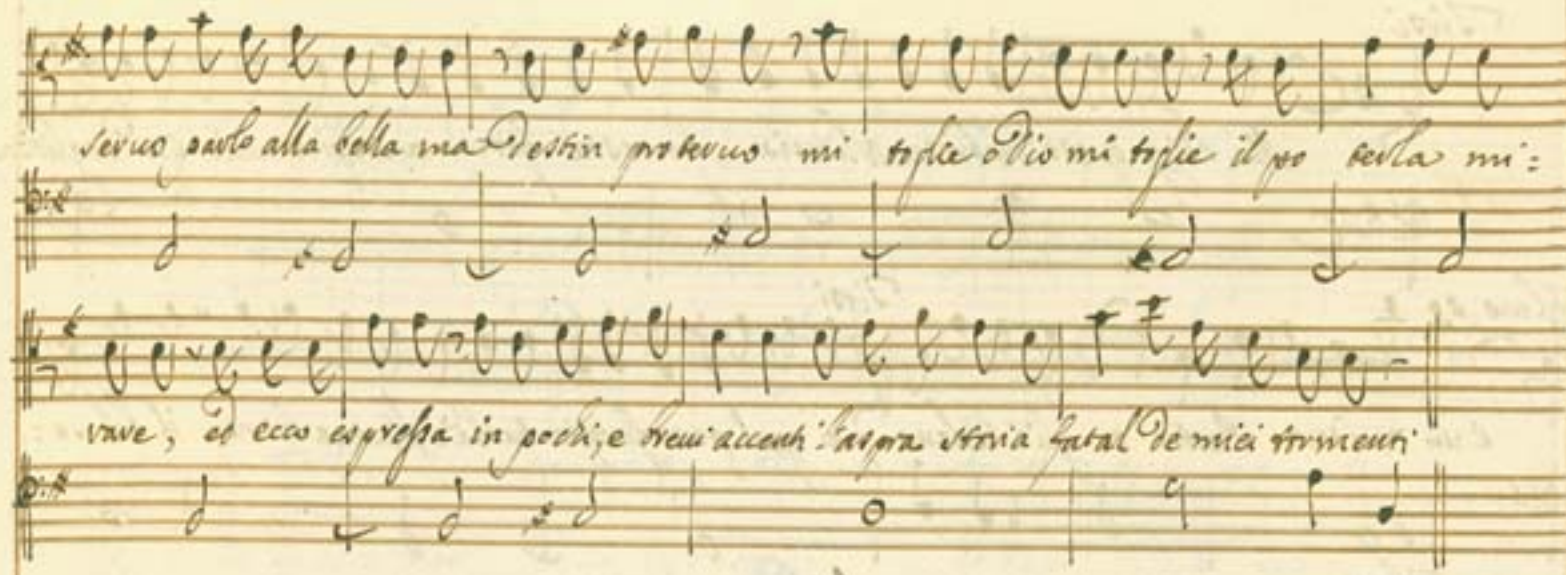 servo parlo alla bella ma destin protervo mi toglie o Dio mi toglie il po terla mi=
rare, ed ecco espressa in pochi, e brevi accenti l'aspra storia fatal de miei tormenti